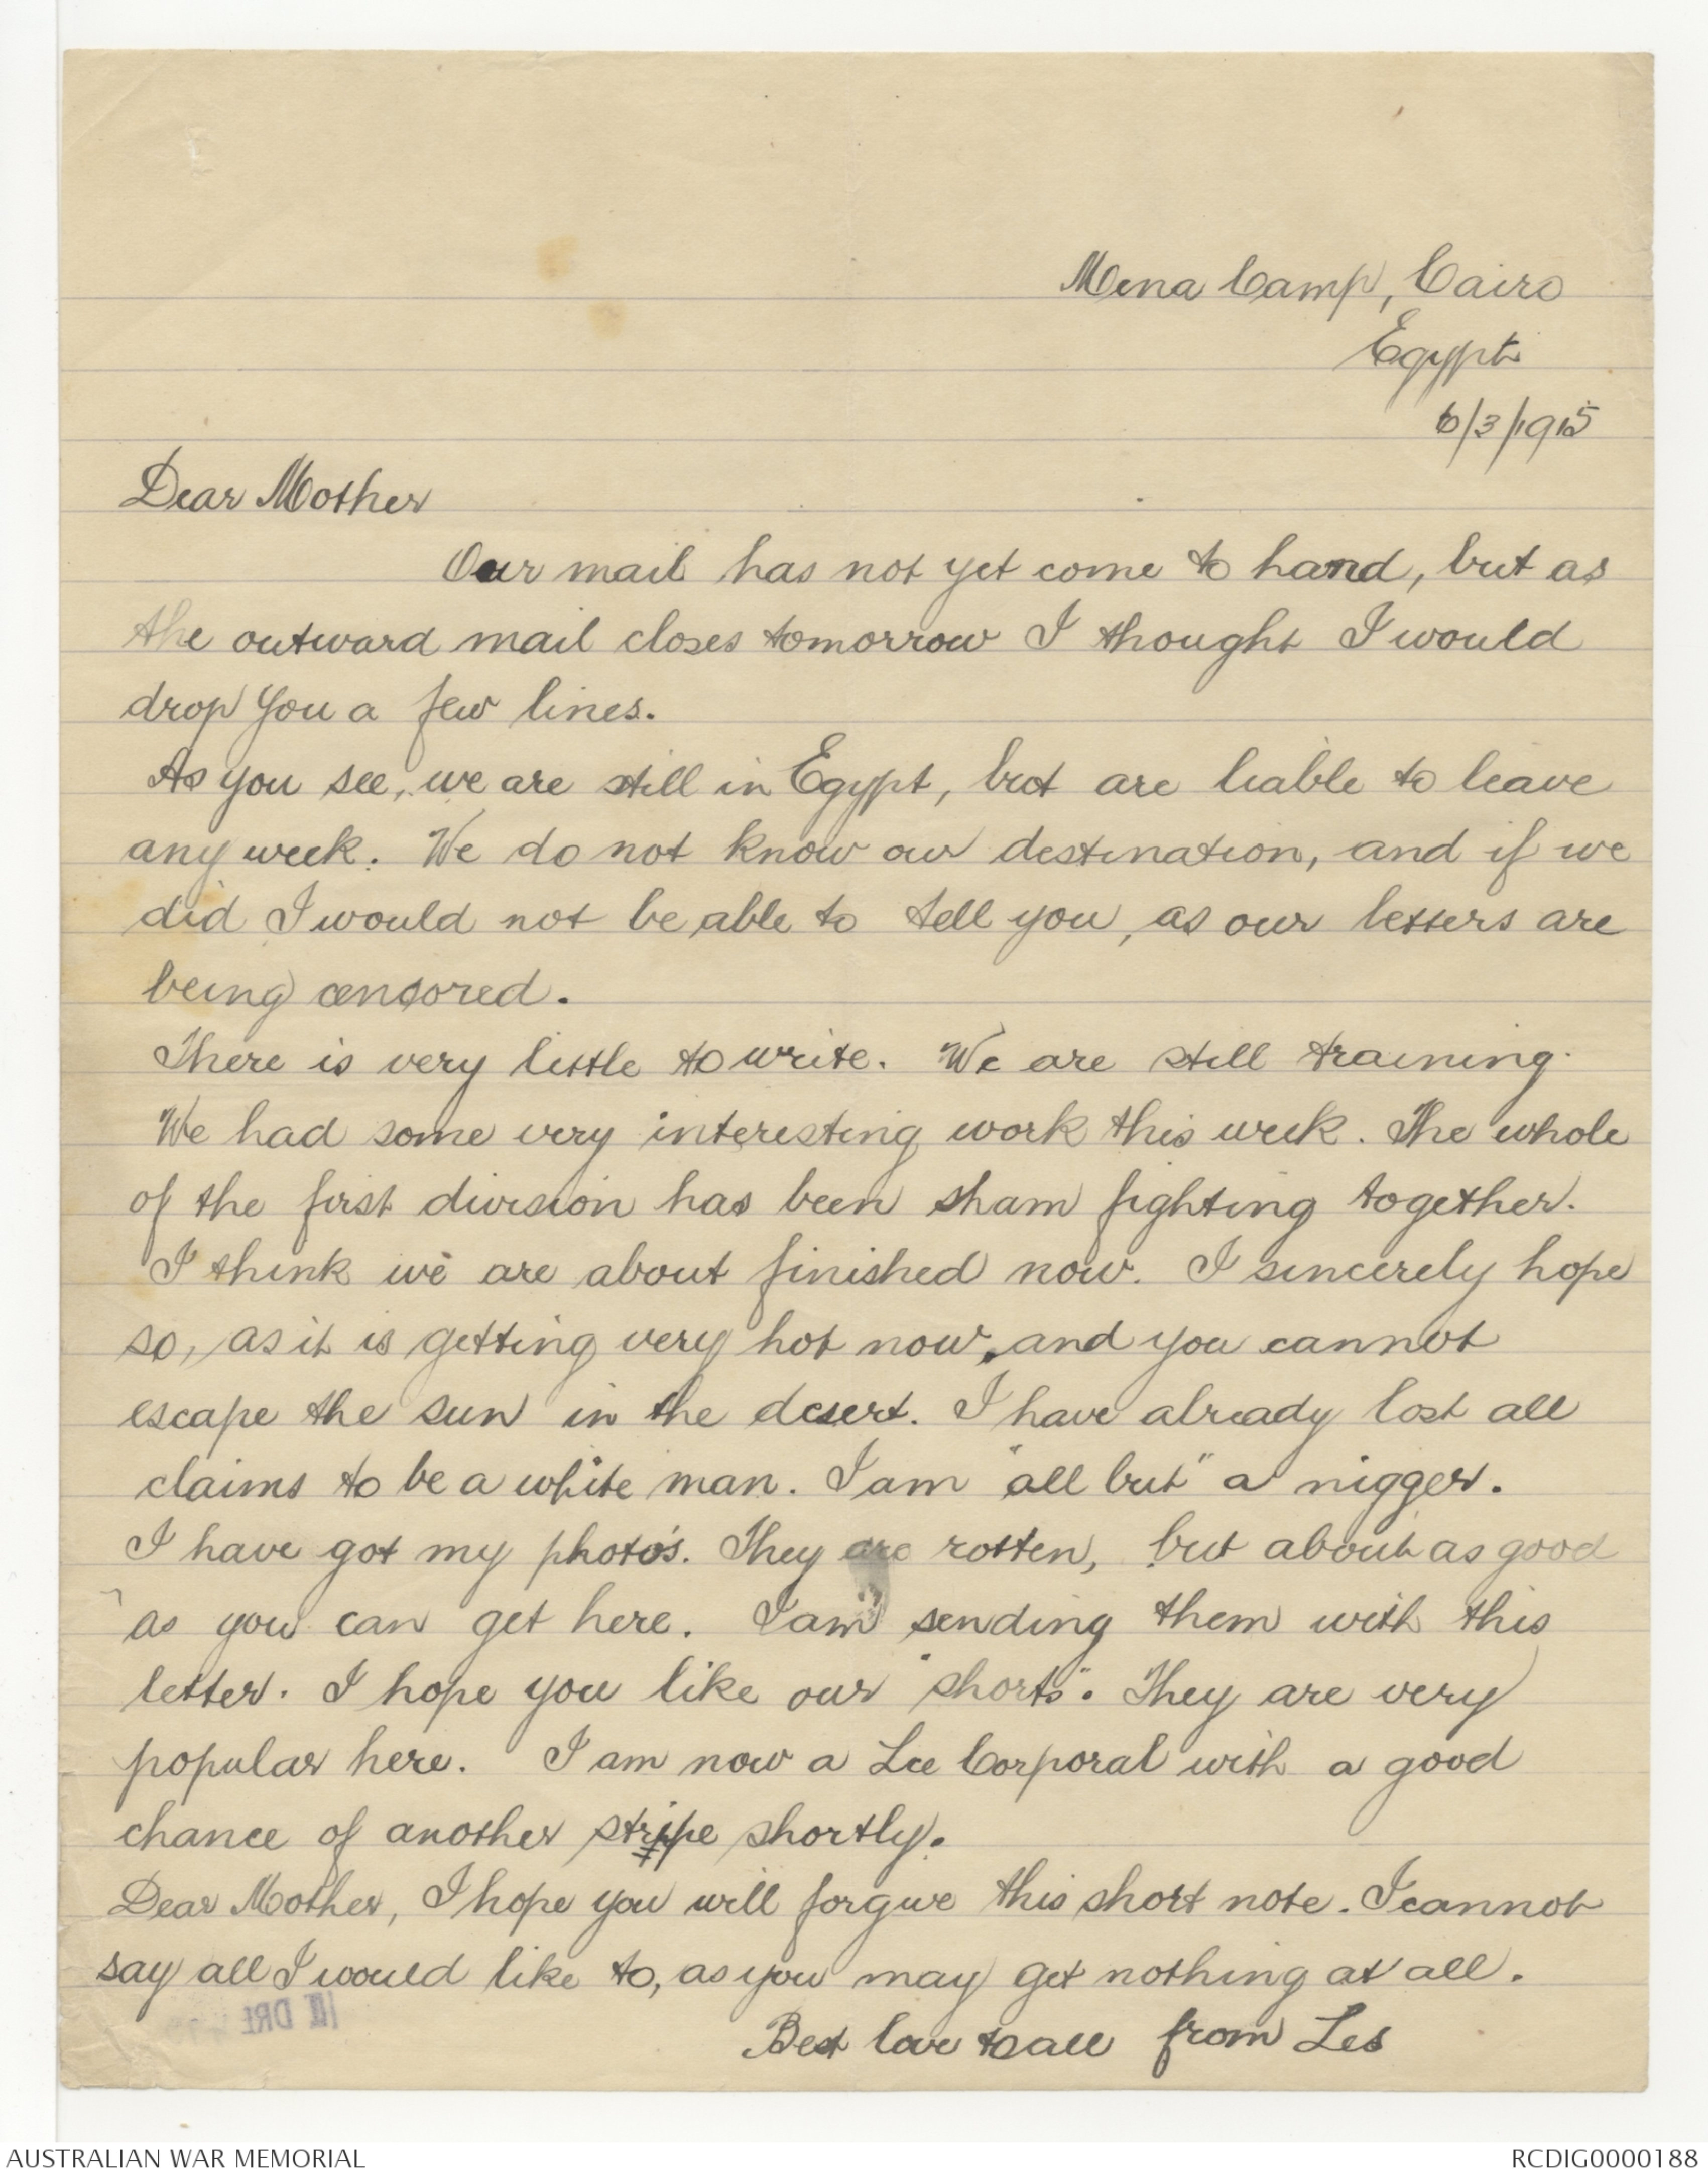 Mena Camp, Cairo
Egypt
6/3/1915
Dear Mother
Our mail has not yet come to hand, but as
the outward mail closes tomorrow I thought I would
drop you a few lines.
As you see, we are still in Egypt, but are liable to leave
any week. We do not know our destination, and if we
did I would not be able to tell you, as our letters are
being censored.
There is very little to write. We are still training.
We had some very interesting work this week. The whole
of the first division has been sham fighting together.
I think we are about finished now. I sincerely hope
so, as it is getting very hot now, and you cannot
escape the sun in the desert. I have already lost all
claims to be a white man. I am "all but" a nigger.
I have got my photo's. They are rotten, but about as good
as you can get here. I am sending them with this
letter. I hope you like our "shorts". They are very
popular here. I am now a Lce Corporal with a good
chance of another stripe shortly.
Dear Mother, I hope you will forgive this short note. I cannot
say all I would like to, as you may get nothing at all.
Best love to all from Les
AUSTRALIAN WAR MEMORIAL
RCDIG0000188